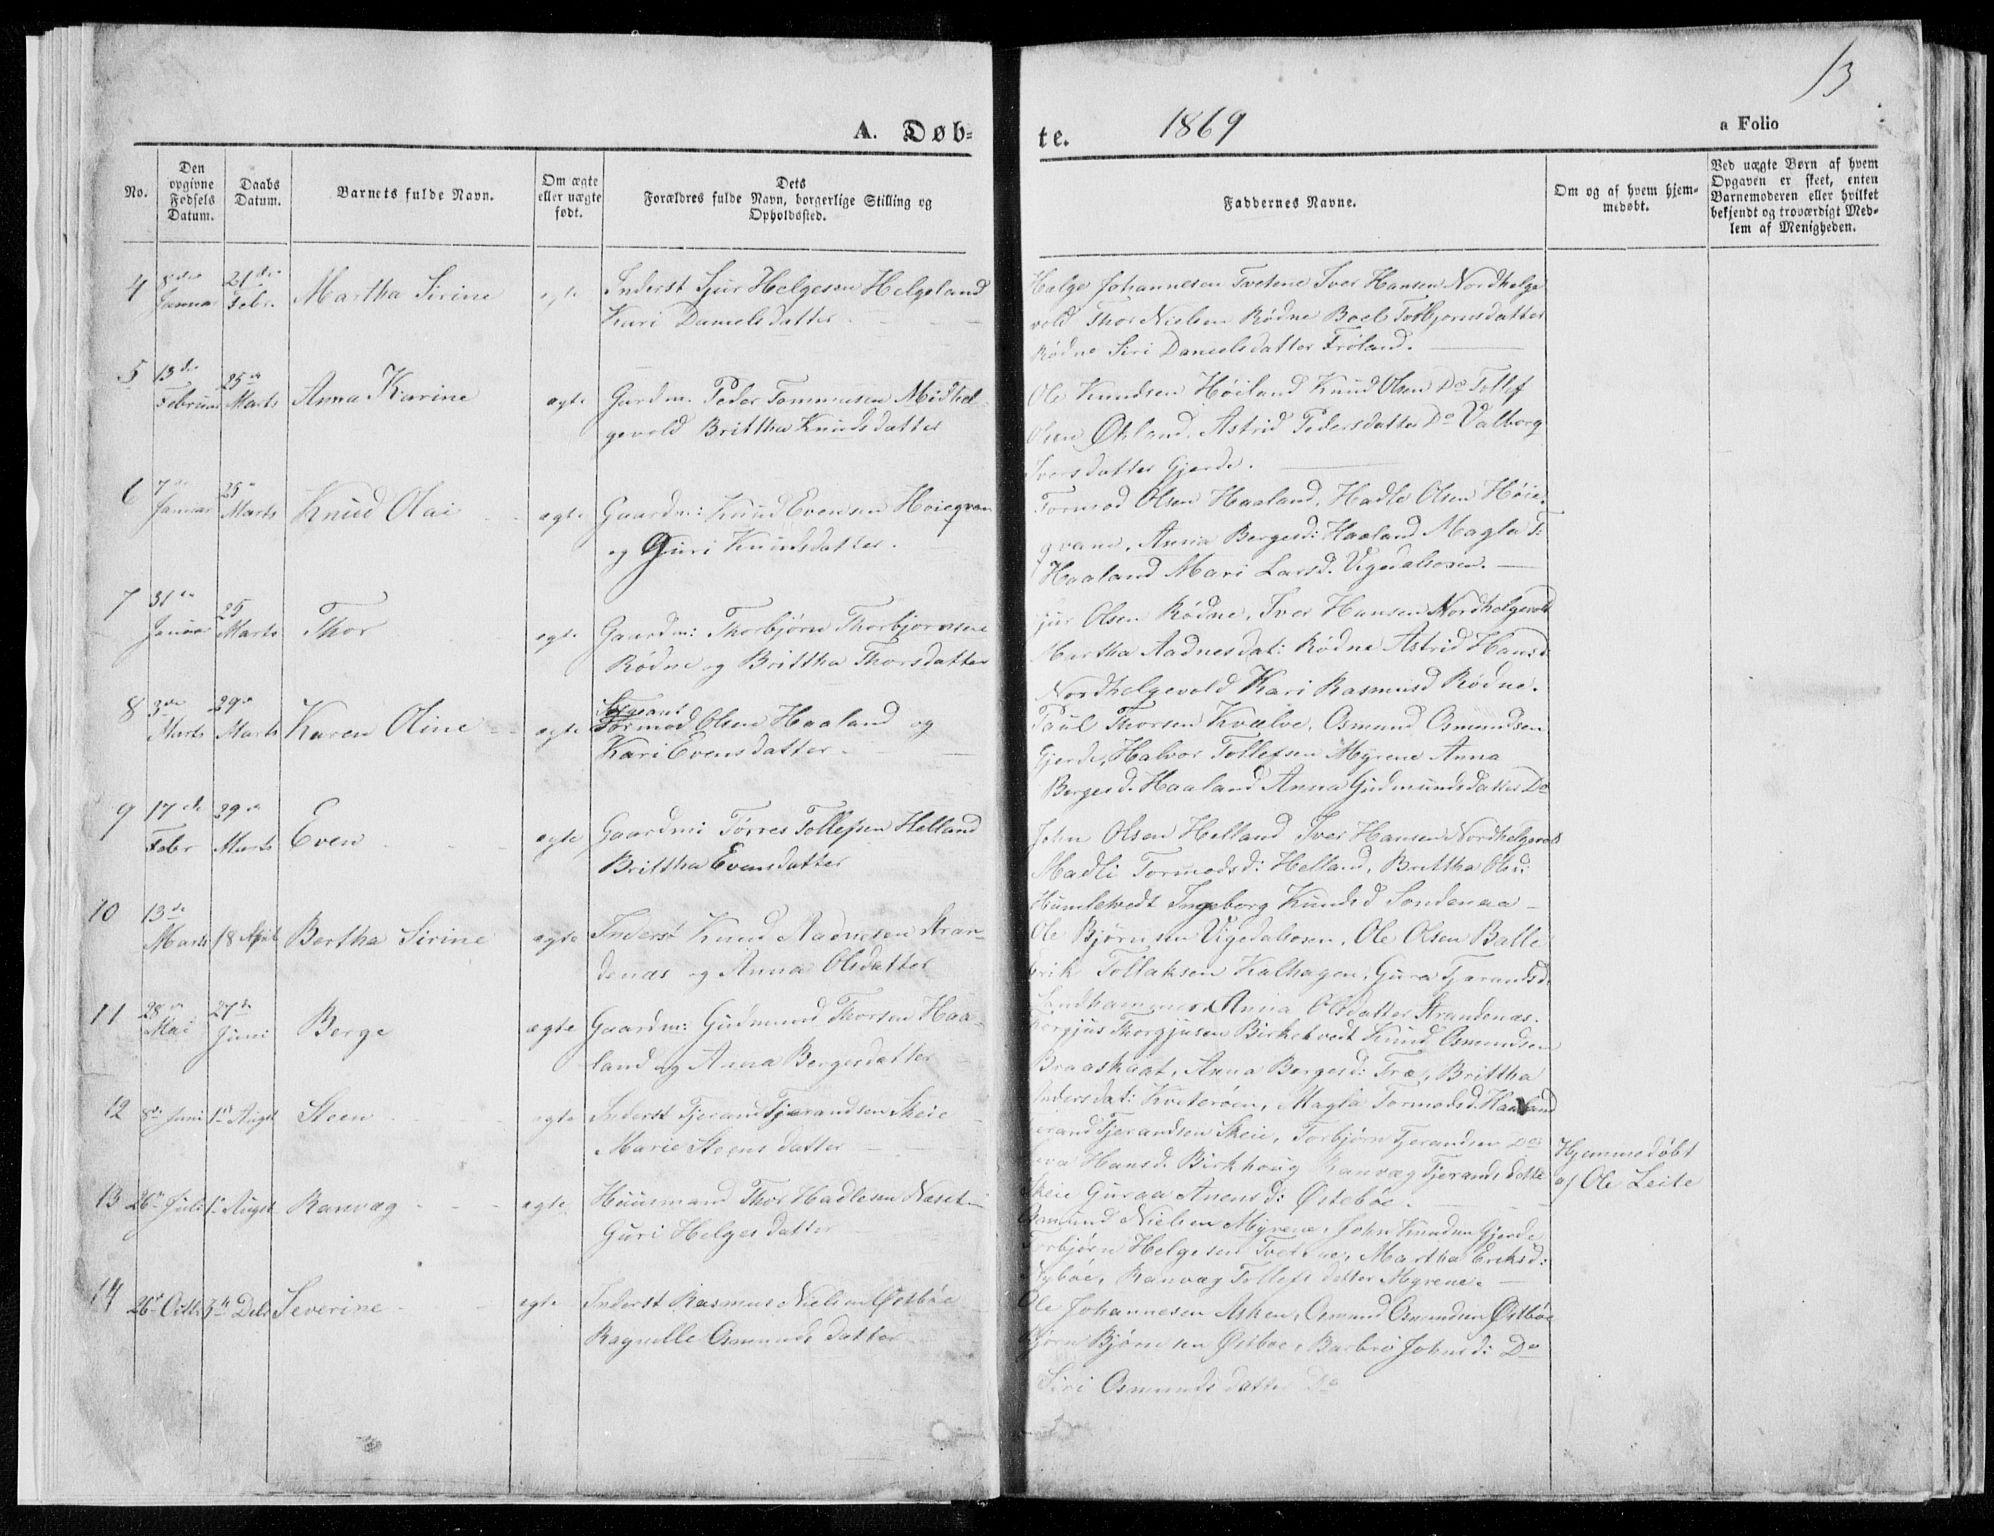 13
A. Døb-
te.
1869
a Folio
No.
Den
opgivne
Fødsels
Datum.
Daabs
Datum.
Barnets fulde Navn.
Om ægte
eller uægte
født.
Dets
Forældres fulde Navn, borgerlige Stilling og
Opholdssted.
Faddernes Navne.
Om og af hvem hjem-
medøbt.
Ved uægte Børn af hvem
Opgaven er skeet, enten
Barnemoderen eller hvilket
bekjendt og troværdigt Med-
lem af Menigheden.
4 8de Januar 21de Febr. Martha Sirine egte Inderst Sjur Helgesen Helgeland
Kari Danielsdatter
Helge Johannesen Tvetene Iver Hansen Nordhelge
vold Thor Nielsen Rødne Boel Torbjornsdatter
Rødne Siri Danielsdatter Frøland.
5 13de Februar 25de Marts Anna Karine egte Gardm. Peder Tommesen Midhel-
gevold Brittha Knudsdatter
Ole Knudsen Høiland Knud Olsen Do Tollef
Olsen Økland, Astrid Pedersdatter Do Valborg
Iversdatter Gjerde.
6 7de Januar 25de Marts Knud Olai egte Gaardm: Knud Evensen Høiegvam
og Guri Knudsdatter.
Tormod Olsen Haaland, Hadle Olsen Høie-
gvam, Anna Bergesd: Haaland Magla T:
Haaland Mari Larsd. Vigedalsosen.
7 31te Januar 25 Marts Thor egte Gaardm: Thorbjørn Thorbjornsen
Rødne og Brittha Thorsdatter
jur Olsen Rødne, Iver Hansen Nordhelgevold
Martha Aadnesdat: Rødne Astrid Hansd
Nordhelgevold Kari Rasmusd Rødne.
8 3de Marts 29de Marts Karen Oline egte Sergeant
Tormod Olsen Haaland og
Kari Evensdatter
Paul Thorsen Kvælve, Osmund Osmundsen
Gjerde, Halvor Tollefsen Myrene Anna
Bergesd. Haaland Anna Gudmundsdatter Do
9 17de Febr 29de Marts Even egte Gaardm: Tørres Tollefsen Helland
Brittha Evensdatter
John Olsen Helland Iver Hansen Nordhelgevold
Madli Tormodsd: Helland, Brittha Olsd:
Humlekvedt Ingeborg Knudsd Søndenaa
10 13de Marts 18 April Bertha Sirine egte Inderst Knud Aadnesen Stran-
denæs og Anna Olsdatter
Ole Bjørnsen Vigedalsosen, Ole Olsen Balle
Erik Tollaksen Kalhagen, Gura Tjerandsd.
Sandhammer, Anna Olsdatter Strandenæs.
11 28de Mai 27de Juni Berge ægte Gaardm: Gudmund Thorsen Haa-
land og Anna Bergesdatter
Thorgjus Thorgjusen Birkekvedt Knud Osmundsen
Braaskaat, Anna Bergesd: Træ, Brittha
Andersdat: Kviterøen, Magla Tormodsd. Haaland
12 8de Juni 1te Augst Steen egte Inderst Tjerand Tjerandsen Skeie
Marie Steensdatter
Tjerand Tjerandsen Skeie, Torbjørn Tjerandsen Do
Hansd. Birkhoug Ranvæg Tjerandsdatter
Skeie Guraa Anensd: Østebøe.
Hjemmedøbt
af Ole Leite
13 26de Juli 1te Augst Ranvæg egte Huusmand Thor Hadlesen Næset
Guri Helgesdatter
Osmund Nielsen Myrene, John Knudsen Gjerde
Torbjørn Helgesen Tvetene, Martha Eriksd:
Nybøe, Ranvæg Tollefsdatter Myrene.
14 26de Octbr 5te Debr Severine egte Inderst Rasmus Nielsen Østbøe
Ragnelle Osmundsdatter
Ole Johannesen Asken, Osmund Osmundsen Østbøe
Bjørn Bjørnsen Østbøe, Barbro Johnsd: Do
Siri Osmundsdatter Do